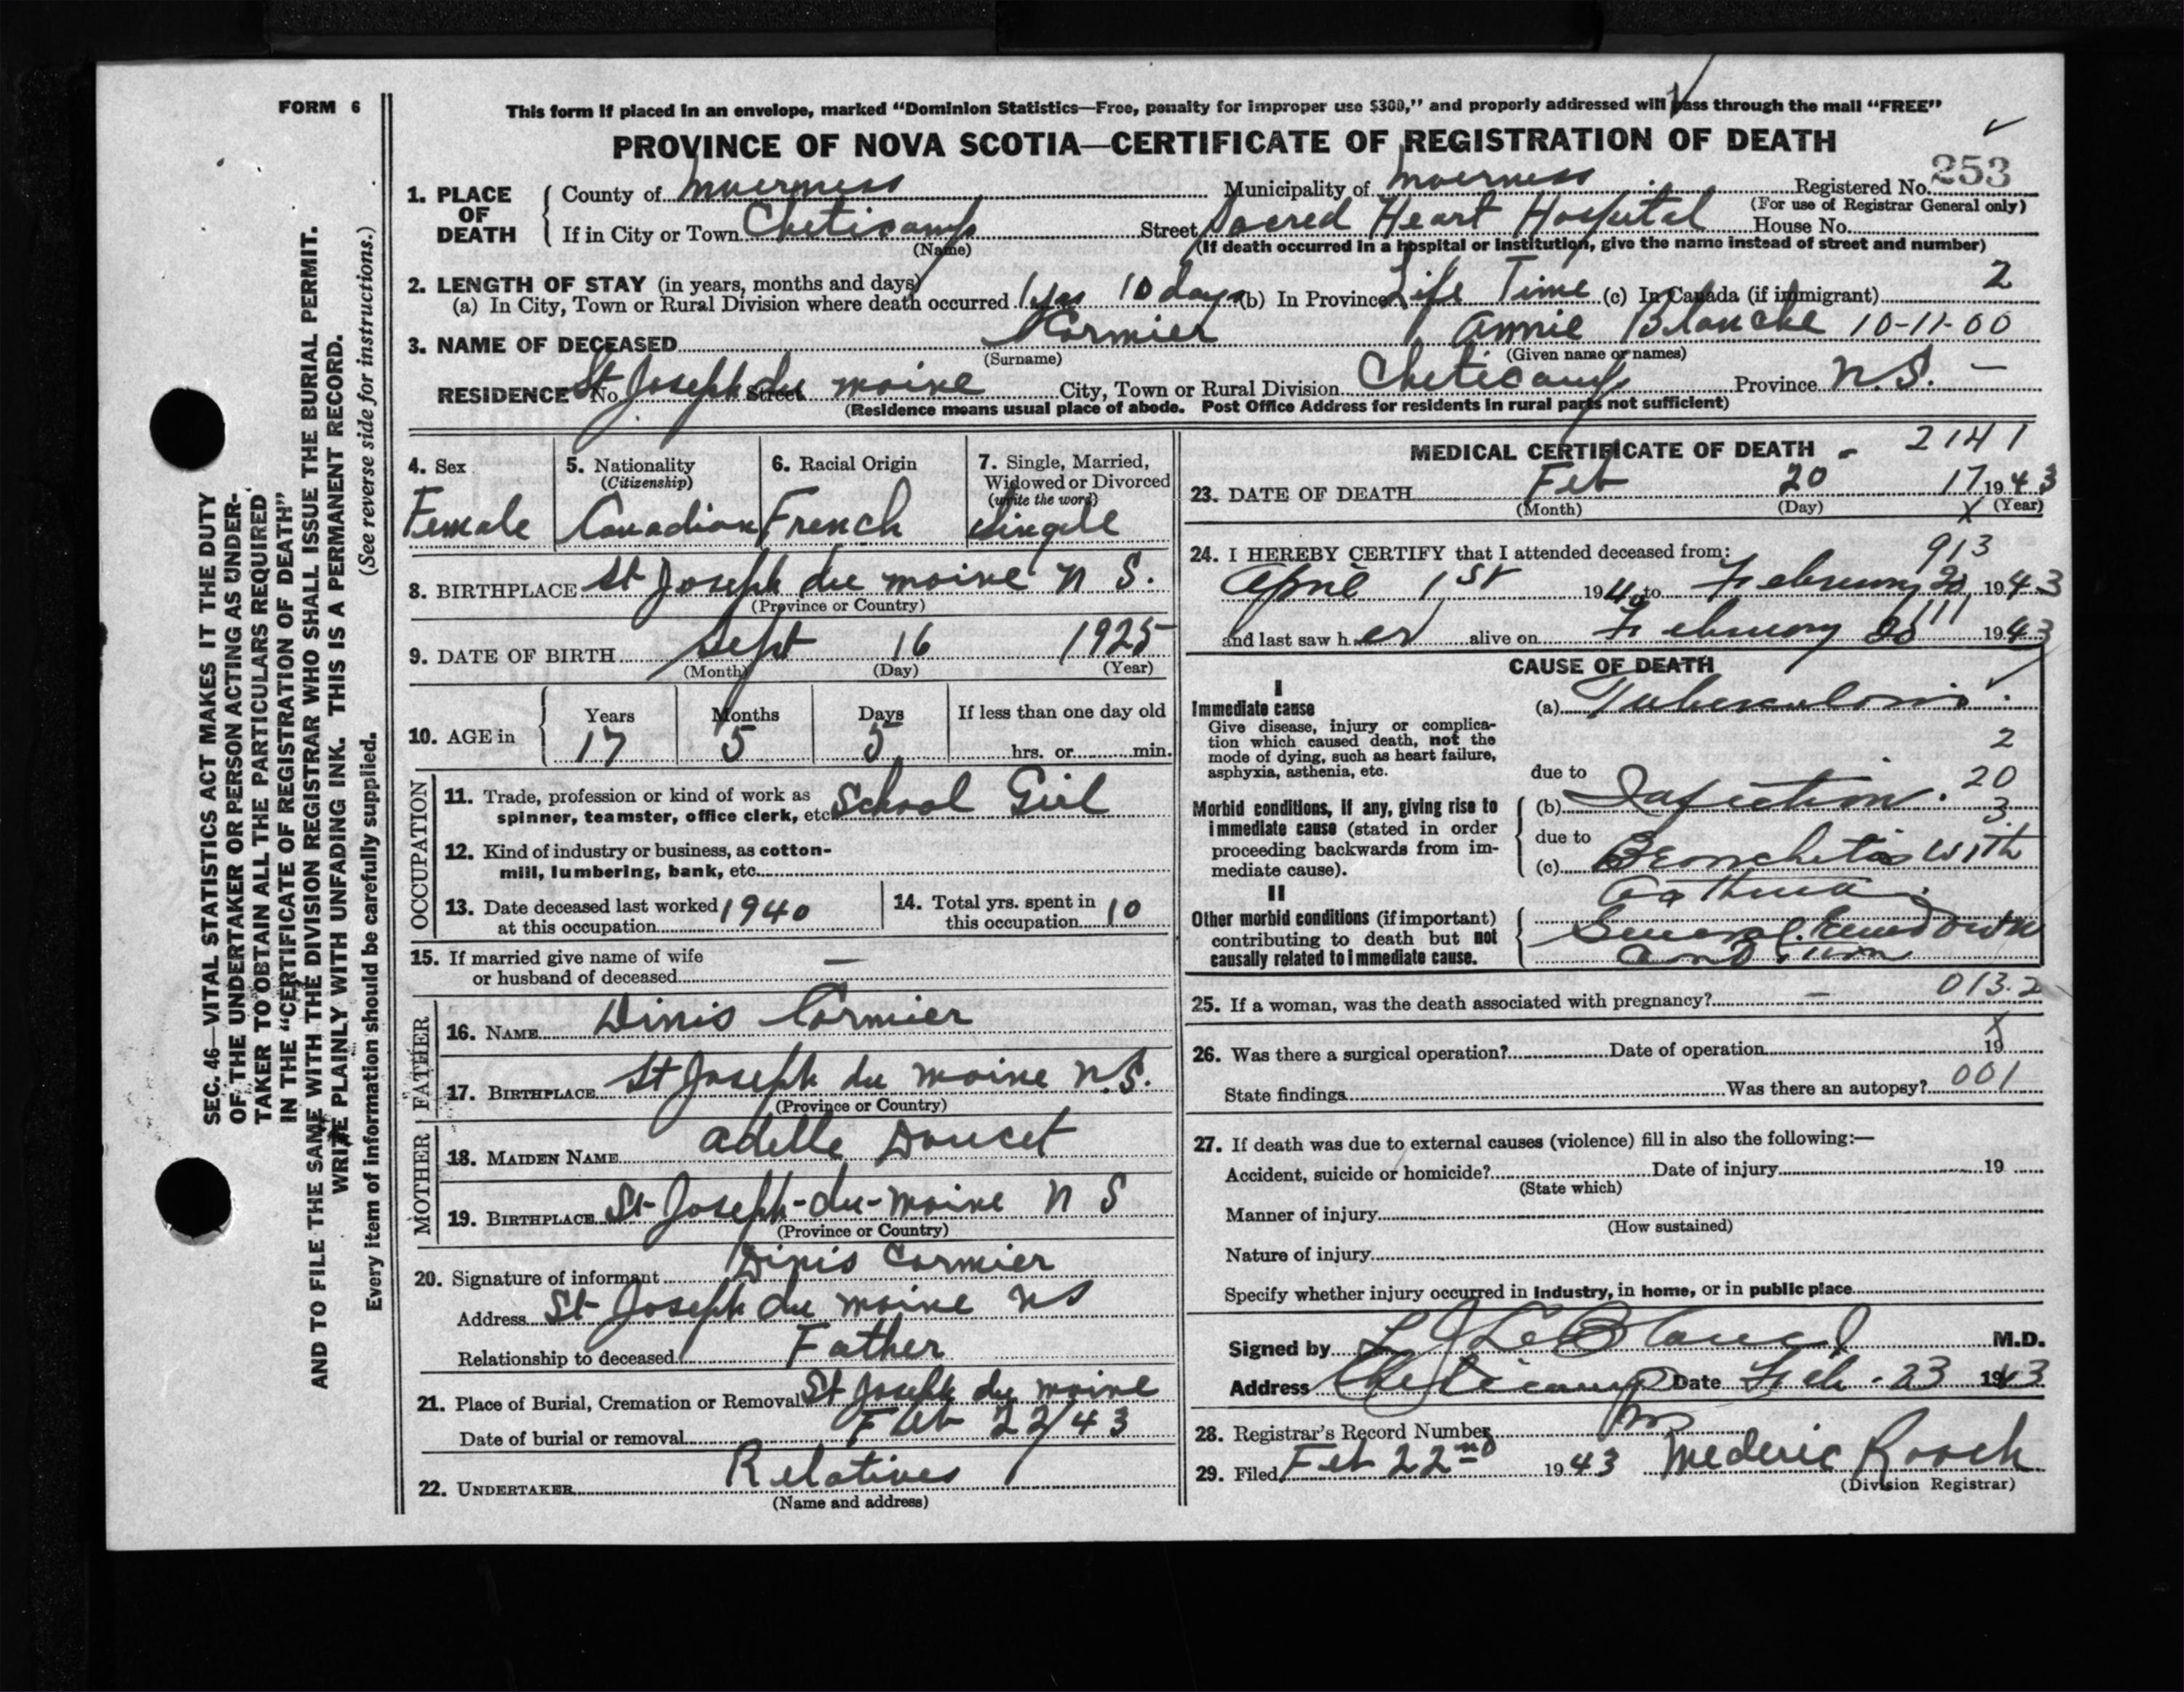 FORM 6
This form if placed in an envelope, marked "Dominion Statistics—Free, penalty for improper use $300," and properly addressed will pass through the mail "FREE"
PROVINCE OF NOVA SCOTIA—CERTIFICATE OF REGISTRATION OF DEATH
1. PLACE OF DEATH
County of Inverness Municipality of Inverness Registered No. 253
(For use of Registrar General only)
If in City or Town Cheticamp Street Sacred Heart Hospital House No.
(Name) (If death occurred in a hospital or institution, give the name instead of street and number)
2. LENGTH OF STAY (in years, months and days)
(a) In City, Town or Rural Division where death occurred 1 yrs 10 days (b) In Province Life Time (c) In Canada (if immigrant) 2
3. NAME OF DECEASED Cormier Annie Blanche 10-11-00
(Surname) (Given name or names)
RESIDENCE No. St Joseph du moine Street City, Town or Rural Division Cheticamp Province N.S. —
(Residence means usual place of abode. Post Office Address for residents in rural parts not sufficient)
4. Sex
Female
5. Nationality
(Citizenship)
Canadian
6. Racial Origin
French
7. Single, Married,
Widowed or Divorced
(write the word)
Single
8. BIRTHPLACE St Joseph du moine N S.
(Province or Country)
9. DATE OF BIRTH Sept 16 1925
(Month) (Day) (Year)
10. AGE in
Years Months Days If less than one day old
17 5 5 hrs. or min.
OCCUPATION
11. Trade, profession or kind of work as
spinner, teamster, office clerk, etc. School Girl
12. Kind of industry or business, as cotton-
mill, lumbering, bank, etc.
13. Date deceased last worked 1940
at this occupation
14. Total yrs. spent in
this occupation 10
15. If married give name of wife
or husband of deceased —
FATHER
16. NAME Dinis Cormier
17. BIRTHPLACE St Joseph du moine N.S.
(Province or Country)
MOTHER
18. MAIDEN NAME Adelle Doucet
19. BIRTHPLACE St-Joseph-du-moine N S
(Province or Country)
20. Signature of informant Dinis Cormier
Address St-Joseph du moine NS
Relationship to deceased Father
21. Place of Burial, Cremation or Removal St Joseph du moine
Date of burial or removal Feb 22/43
22. UNDERTAKER Relatives
(Name and address)
MEDICAL CERTIFICATE OF DEATH - 2141
23. DATE OF DEATH Feb 20 17 1943
(Month) (Day) X (Year)
24. I HEREBY CERTIFY that I attended deceased from: 913
April 1st 194 to February 20, 1943
and last saw her alive on February 1943
CAUSE OF DEATH
I
Immediate cause
Give disease, injury or complica-
tion which caused death, not the
mode of dying, such as heart failure,
asphyxia, asthenia, etc.
(a) Tuberculosis
2
due to
20
(b) Infection.
3
Morbid conditions, if any, giving rise to
immediate cause (stated in order
proceeding backwards from im-
mediate cause).
due to
(c) Bronchitis with
asthma.
II
Other morbid conditions (if important)
contributing to death but not
causally related to immediate cause.
General
25. If a woman, was the death associated with pregnancy? — 013.2
26. Was there a surgical operation? Date of operation X 19
State findings Was there an autopsy? 001
27. If death was due to external causes (violence) fill in also the following:—
Accident, suicide or homicide? Date of injury 19
(State which)
Manner of injury
(How sustained)
Nature of injury
Specify whether injury occurred in industry, in home, or in public place
Signed by L J LeBlanc M.D.
Address Cheticamp Date Feb. 23 1943
28. Registrar's Record Number
29. Filed Feb 22nd 1943 Mederic Roach
(Division Registrar)
SEC. 46—VITAL STATISTICS ACT MAKES IT THE DUTY
OF THE UNDERTAKER OR PERSON ACTING AS UNDER-
TAKER TO OBTAIN ALL THE PARTICULARS REQUIRED
IN THE "CERTIFICATE OF REGISTRATION OF DEATH"
AND TO FILE THE SAME WITH THE DIVISION REGISTRAR WHO SHALL ISSUE THE BURIAL PERMIT.
WRITE PLAINLY WITH UNFADING INK. THIS IS A PERMANENT RECORD.
Every item of information should be carefully supplied. (See reverse side for instructions.)